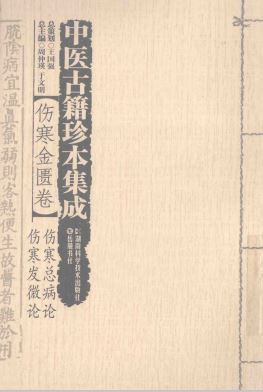 中医古籍珍本集成
总策划◎王国强
总主编◎周仲瑛 于文明
【伤寒金匮卷】
伤寒总病论
伤寒发微论
湖南科学技术出版社
岳麓书社
脱阴病宜温真气弱则客热便生故医者难於用